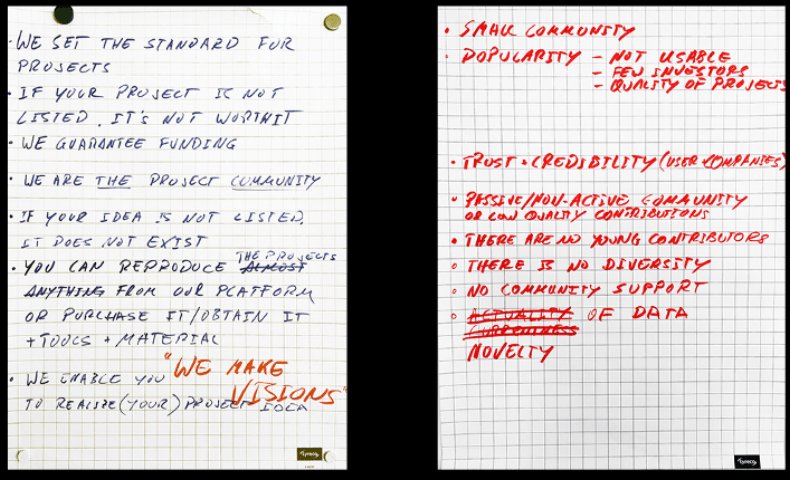 · WE SET THE STANDARD FOR
PROJECTS
· IF YOUR PROJECT IS NOT
LISTED, IT'S NOT WORTH IT
· WE GUARANTEE FUNDING
· WE ARE THE PROJECT COMMUNITY
· IF YOUR IDEA IS NOT LISTED,
IT DOES NOT EXIST
THE PROJECTS
· YOU CAN REPRODUCE ALMOST
ANYTHING FROM OUR PLATFORM
OR PURCHASE IT/OBTAIN IT
+TOOLS + MATERIAL
"WE MAKE
VISIONS"
· WE ENABLE YOU
TO REALIZE (YOUR) PROJECT IDEA
· SMALL COMMUNITY
· POPULARITY - NOT USABLE
- FEW INVESTORS
- QUALITY OF PROJECTS
· TRUST + CREDIBILITY (USER + COMPANIES)
· PASSIVE/NON-ACTIVE COMMUNITY
OR LOW QUALITY CONTRIBUTIONS
· THERE ARE NO YOUNG CONTRIBUTORS
· THERE IS NO DIVERSITY
· NO COMMUNITY SUPPORT
· ACTUALITY OF DATA
CURRENTNESS
NOVELTY